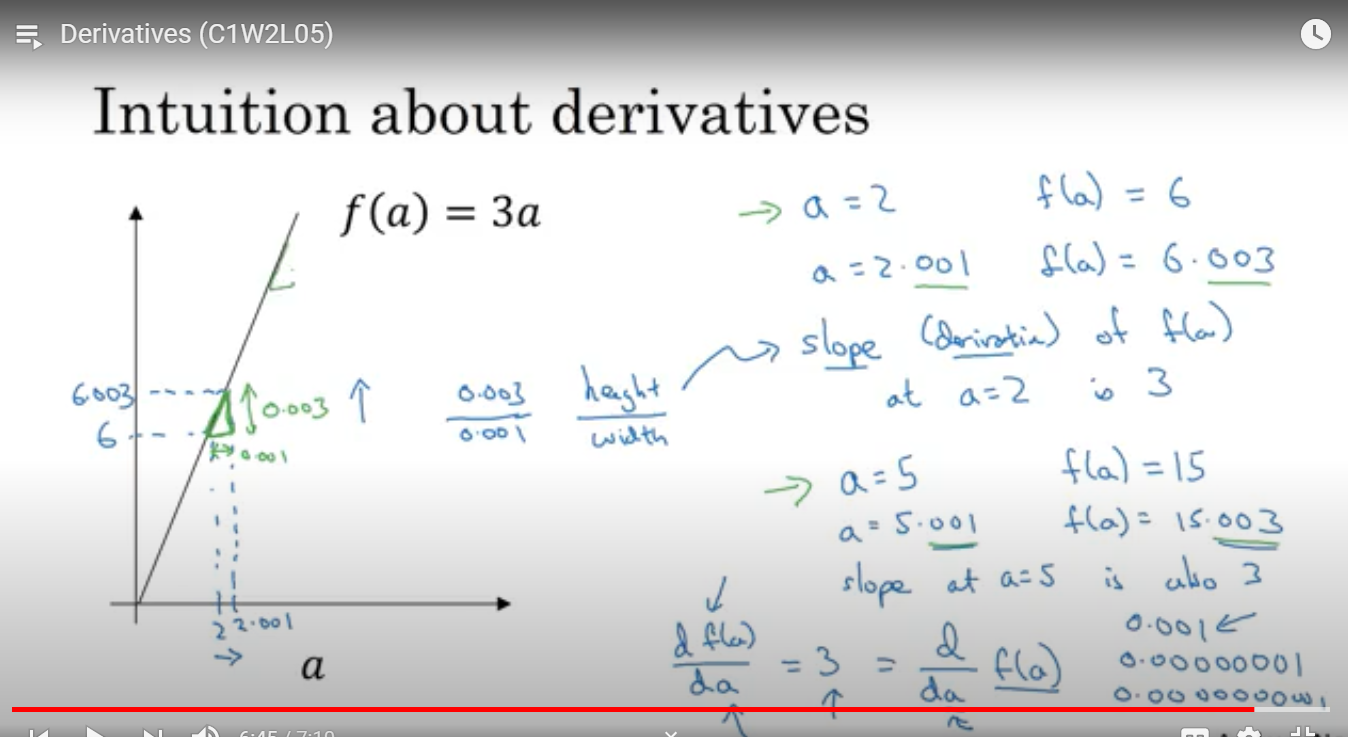 Derivatives (C1W2L05)
Intuition about derivatives
f(a) = 3a
6.003
6
0.003
0.001
2 2.001
a
0.003
0.001
height
width
a = 2 f(a) = 6
a = 2.001 f(a) = 6.003
slope (derivative) of f(a)
at a=2 is 3
a = 5 f(a) = 15
a = 5.001 f(a) = 15.003
slope at a=5 is also 3
d f(a)
da
= 3 =
d
da
f(a)
0.001
0.00000001